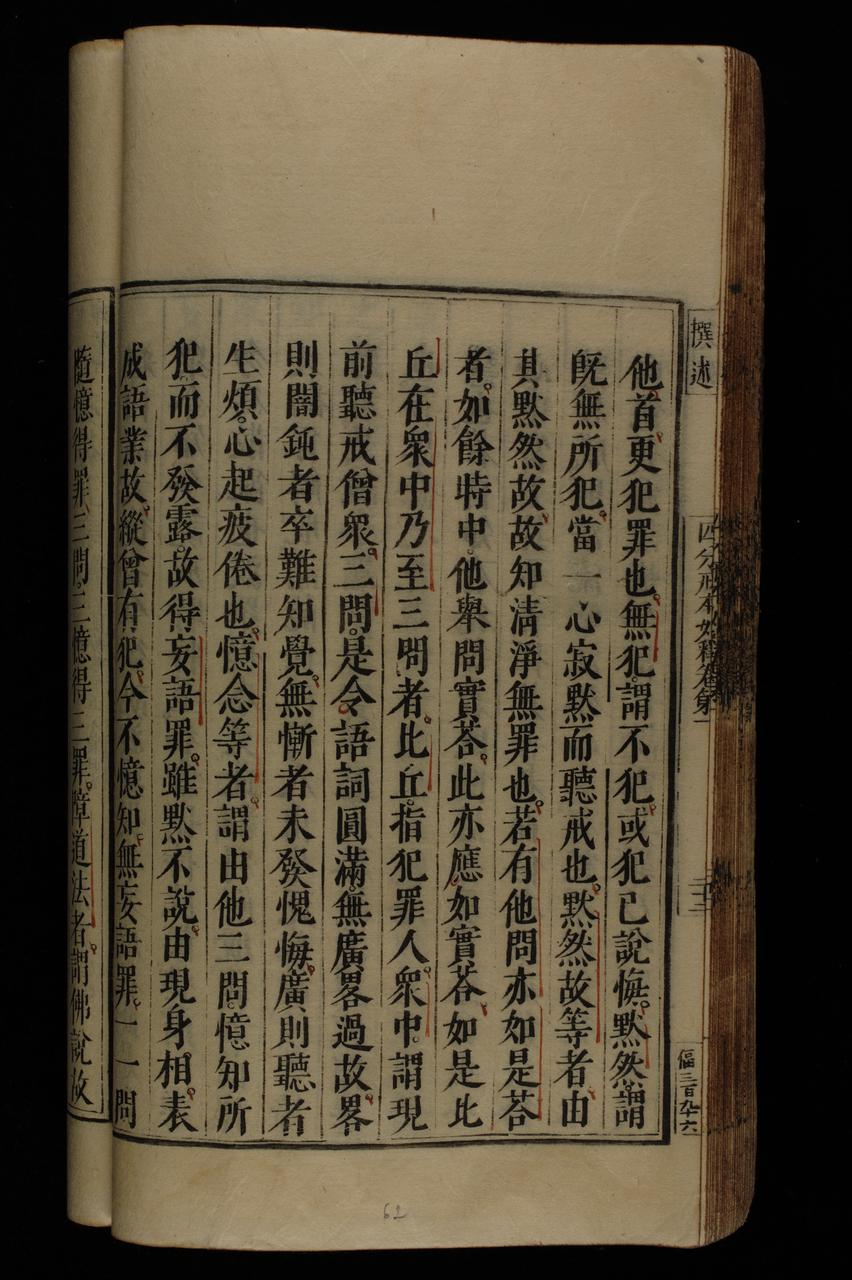 他首更犯罪也無犯謂不犯或犯已說悔默然謂
旣無所犯當一心寂默而聽戒也默然故等者由
其默然故故知清淨無罪也若有他問亦如是荅
者如餘時中他舉問實荅此亦應如實荅如是比
丘在衆中乃至三問者比丘指犯罪人衆中謂現
前聽戒僧衆三問是令語詞圓滿無廣畧過故畧
則闇鈍者卒難知覺無慚者未發愧悔廣則聽者
生煩心起疲倦也憶念等者謂由他三問憶知所
犯而不發露故得妄語罪雖默不說由現身相表
成語業故縱曾有犯今不憶知無妄語罪一一問
隨憶得罪三問三憶得三罪障道法者謂佛說故
撰述
四分戒本如釋卷第一
三十二
傴三百九十六
62